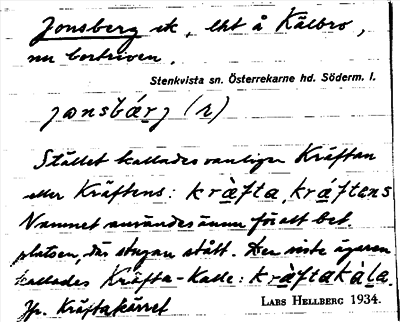 Jonsberg sk, lht å Kälbro,
nu bortriven.
Stenkvista sn. Österrekarne hd. Söderm. l.
jonsbärj (r)
Stället kallades vanligen Kräftan
eller Kräftens: kräfta, kräftens
Namnet användes ännu för att bet.
platsen, där stugan stått. Den siste ägaren
kallades Kräfta-Kalle: kräftakàla.
Jfr. Kräftakärret
LARS HELLBERG 1934.